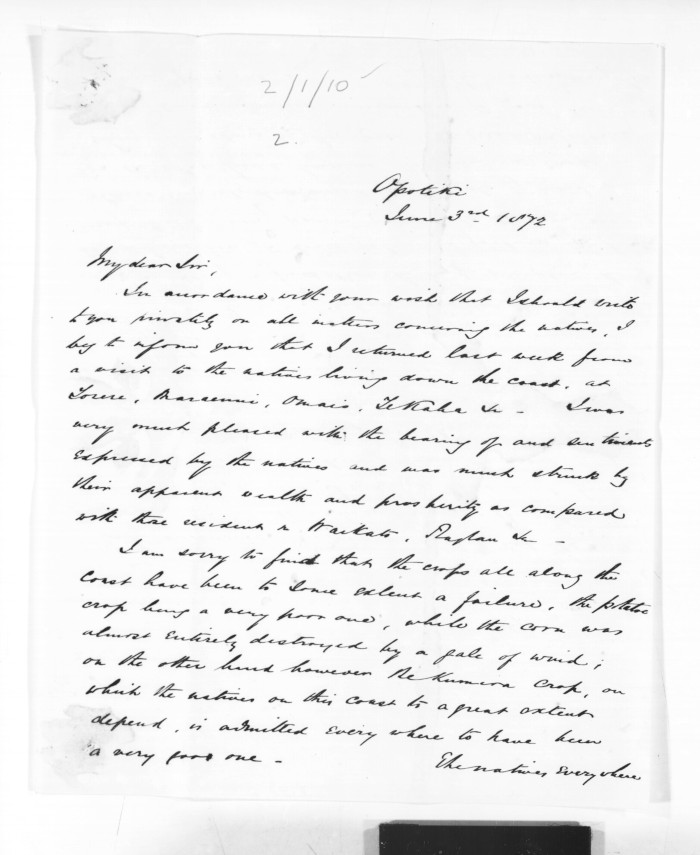 2/1/10
2.
Opotiki
June 3rd 1872
My dear Sir,
In accordance with your wish that I should write
to you privately on all matters concerning the natives, I
beg to inform you that I returned last week from
a visit to the natives living down the coast, at
Torere, Maraenui, Omaio, Te Kaha &c - I was
very much pleased with the bearing of and sentiments
expressed by the natives and was much struck by
their apparent wealth and prosperity as compared
with those resident in Waikato, Raglan &c -
I am sorry to find that the crops all along the
coast have been to some extent a failure, the potatoe
crop being a very poor one, while the corn was
almost entirely destroyed by a gale of wind;
on the other hand however the Kumera crop, on
which the natives on this coast to a great extent
depend, is admitted every where to have been
a very good one - The natives everywhere